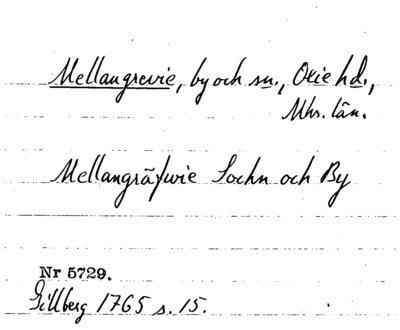 Mellangrevie, by och sn., Oxie hd.,
Mhs. län.
Mellangräfwie Sochn och By
Nr 5729.
Gillberg 1765 s. 15.